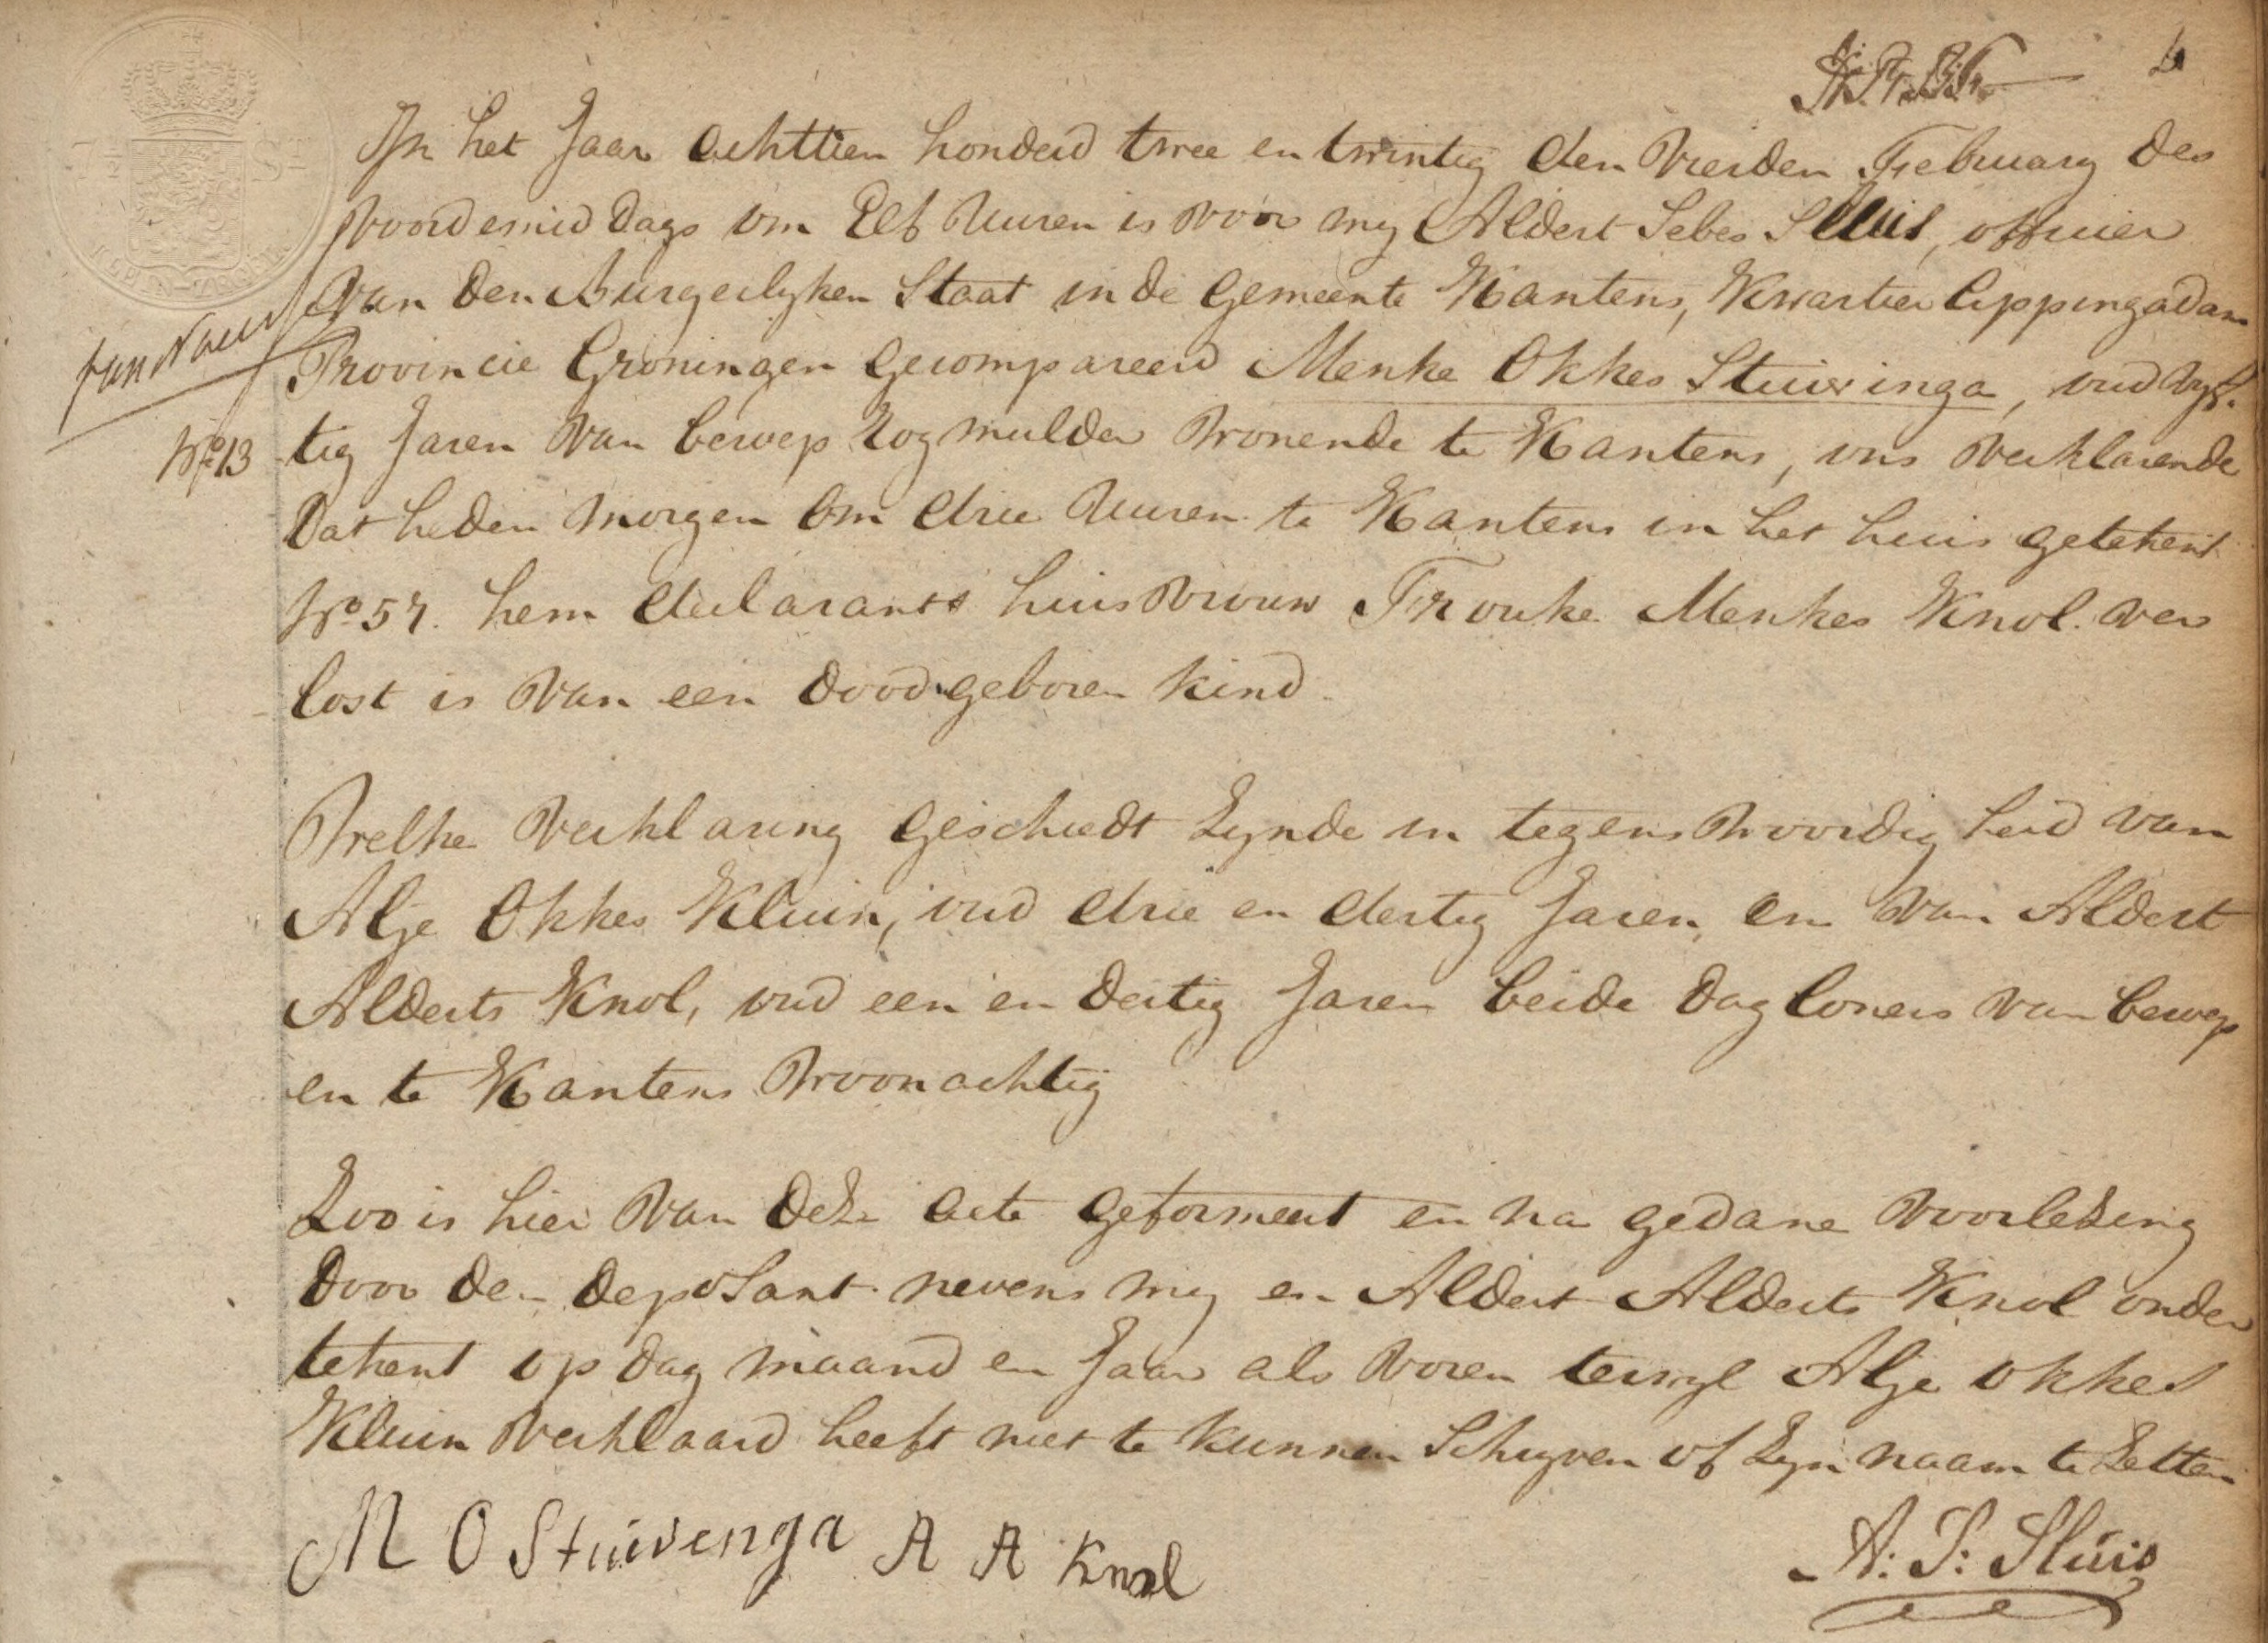 In het Jaar achttien honderd twee en twintig den Vierden February des
voordemid dags om Elf Uuren is voor my Aldert Sebes Sluis, officier
van den Burgerlyken Staat in de Gemeente Kantens, Kwartier Appingadam
Provincie Groningen Gecompareerd Menke Okkes Stuivinga, oud vyf-
No 13 tig Jaren van beroep Rogmulder wonende te Kantens, ons verklarende
Dat heden morgen om drie Uuren te Kantens in het huis getekent
No 57. hem declarants huisvrouw Frouke Menkes Knol. ver
lost is van een dood geboren kind.
Welke verklaring geschiedt zynde in tegenswoordig heid van
Alje Okkes Kluin, oud drie en dertig Jaren, en van Aldert
Alderts Knol, oud een en dertig Jaren beide dagloners van beroep
en te Kantens woonachtig
Zoo is hier van deze acte geformeert en na gedane voorlezing
door den deposant nevens my en Aldert Alderts Knol onder
tekent op dag maand en Jaar als voren terwyl Alje Okkes
Kluin verklaard heeft niet te kunnen Schryven of zyn naam te zetten
M O Stuivenga A A Knol
A: S: Sluis